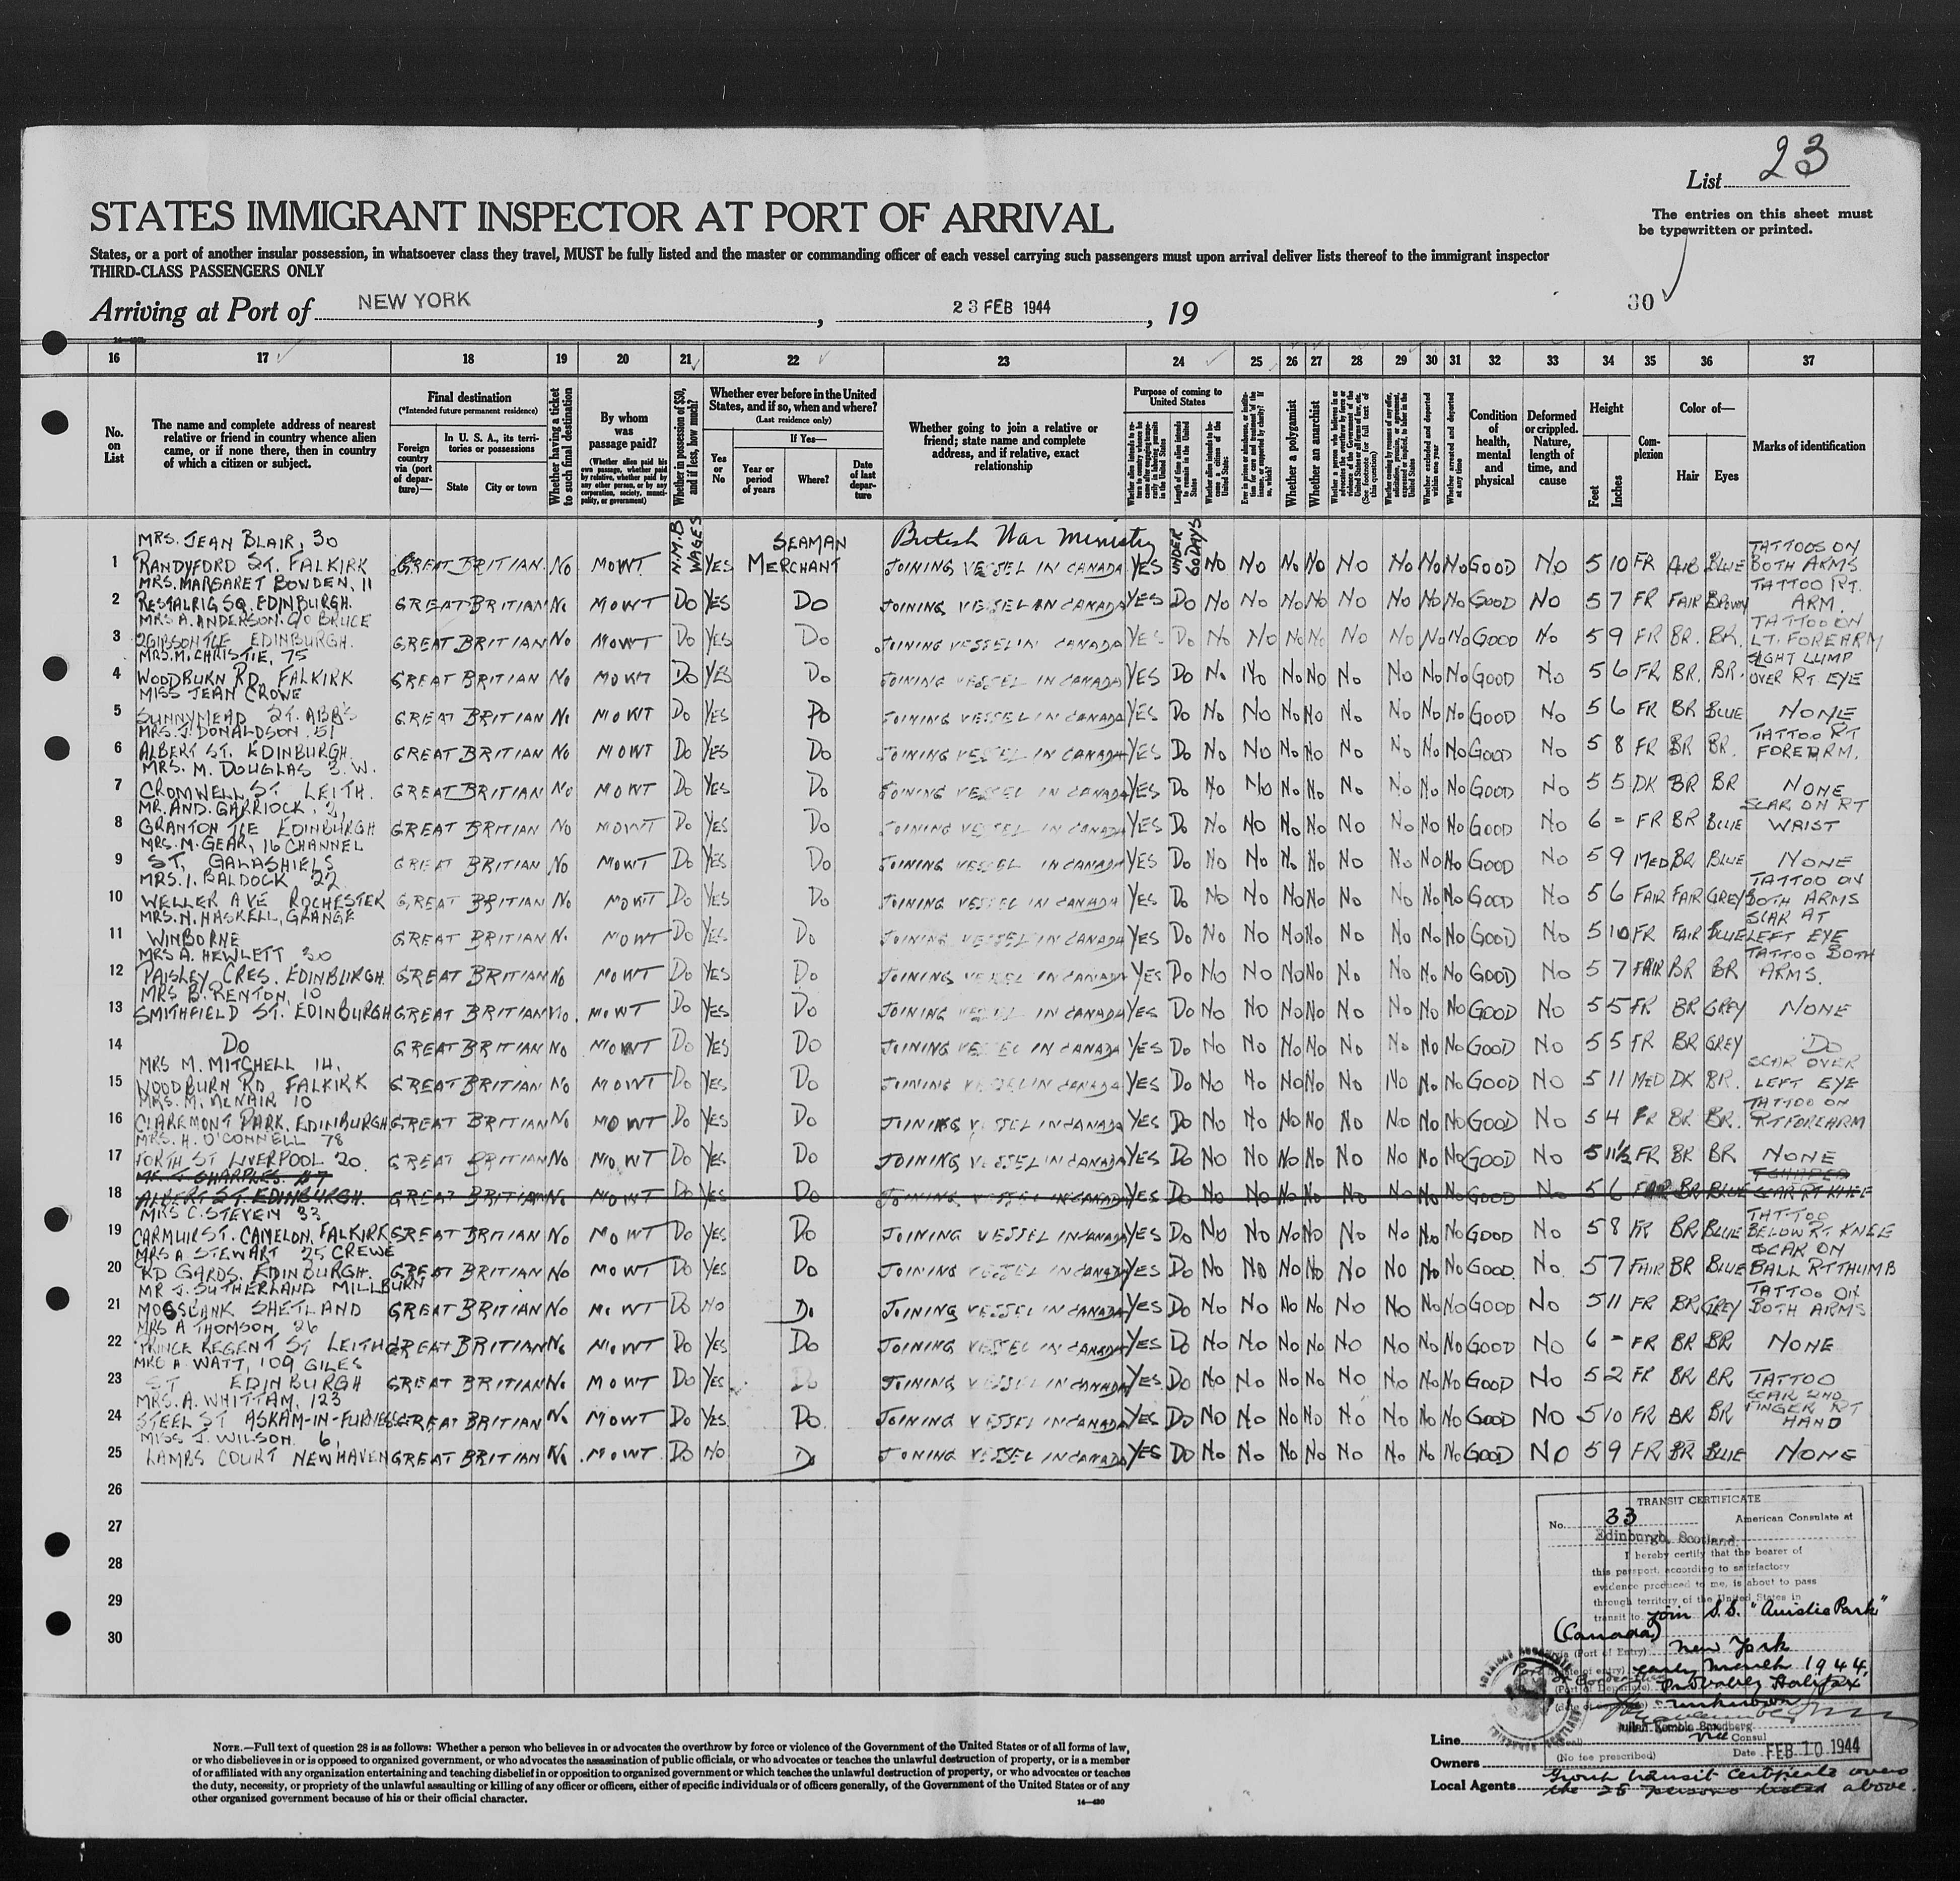 List 23
The entries on this sheet must
be typewritten or printed.
STATES IMMIGRANT INSPECTOR AT PORT OF ARRIVAL
States, or a port of another insular possession, in whatsoever class they travel, MUST be fully listed and the master or commanding officer of each vessel carrying such passengers must upon arrival deliver lists thereof to the immigrant inspector
THIRD-CLASS PASSENGERS ONLY
Arriving at Port of NEW YORK, 23 FEB 1944, 19
30
16 17 18 19 20 21 22 23 24 25 26 27 28 29 30 31 32 33 34 35 36 37
No. on List
The name and complete address of nearest relative or friend in country whence alien came, or if none there, then in country of which a citizen or subject.
Final destination
(*Intended future permanent residence)
Foreign country via (port of departure)—
In U. S. A., its territories or possessions
State
City or town
Whether having a ticket to such final destination
By whom was passage paid?
(Whether alien paid his own passage, whether paid by relative, whether paid by any other person, or by any corporation, society, municipality, or government)
Whether in possession of $50, and if less, how much?
Whether ever before in the United States, and if so, when and where?
(Last residence only)
Yes or No
If Yes—
Year or period of years
Where?
Date of last departure
Whether going to join a relative or friend; state name and complete address, and if relative, exact relationship
Purpose of coming to United States
Whether a polygamist
Whether an anarchist
Whether excluded and deported within one year
Whether arrested and deported at any time
Condition of health, mental and physical
Deformed or crippled. Nature, length of time, and cause
Height
Feet
Inches
Complexion
Color of—
Hair
Eyes
Marks of identification
N.M.B WAGES
SEAMAN
British War Ministry
UNDER 60 DAYS
MRS. JEAN BLAIR, 30
1 RANDYFORD ST. FALKIRK GREAT BRITIAN No MOWT YES MERCHANT JOINING VESSEL IN CANADA YES No No No No No No No No GOOD No 5 10 FR FAIR BLUE TATTOOS ON BOTH ARMS
MRS. MARGARET BOWDEN, 11
2 RESTALRIG SQ. EDINBURGH. GREAT BRITIAN No MOWT Do YES Do JOINING VESSEL IN CANADA YES Do No No No No No No No No GOOD No 5 7 FR FAIR BROWN TATTOO RT. ARM.
MRS A. ANDERSON. C/O BRUCE
3 2 GIBSON TCE EDINBURGH. GREAT BRITIAN No MOWT Do YES Do JOINING VESSEL IN CANADA YES Do No No No No No No No No GOOD No 5 9 FR BR. BR. TATTOO ON LT. FOREARM
MRS. M. CHRISTIE, 75
4 WOODBURN RD. FALKIRK GREAT BRITIAN No MOWT Do YES Do JOINING VESSEL IN CANADA YES Do No No No No No No No No GOOD No 5 6 FR BR. BR. SLIGHT LUMP OVER RT EYE
MISS JEAN CROWE
5 SUNNYMEAD ST. ABB'S GREAT BRITIAN No MOWT Do YES Do JOINING VESSEL IN CANADA YES Do No No No No No No No No GOOD No 5 6 FR BR BLUE NONE
MRS. J. DONALDSON. 51
6 ALBERT ST. EDINBURGH. GREAT BRITIAN No MOWT Do YES Do JOINING VESSEL IN CANADA YES Do No No No No No No No No GOOD No 5 8 FR BR BR. TATTOO RT FOREARM.
MRS. M. DOUGLAS 3. W.
7 CROMWELL ST LEITH. GREAT BRITIAN No MOWT Do YES Do JOINING VESSEL IN CANADA YES Do No No No No No No No No GOOD No 5 5 DK BR BR NONE
MR. AND. GARRIOCK. 2,
8 GRANTON TCE EDINBURGH GREAT BRITIAN No MOWT Do YES Do JOINING VESSEL IN CANADA YES Do No No No No No No No No GOOD No 6 - FR BR BLUE SCAR ON RT WAIST
MRS. M. GEAR, 16 CHANNEL
9 ST, GALASHIELS GREAT BRITIAN No MOWT Do YES Do JOINING VESSEL IN CANADA YES Do No No No No No No No No GOOD No 5 9 MED BR BLUE NONE
MRS. I. BALDOCK 22
10 WELLER AVE ROCHESTER GREAT BRITIAN No MOWT Do YES Do JOINING VESSEL IN CANADA YES Do No No No No No No No No GOOD No 5 6 FAIR FAIR GREY TATTOO ON BOTH ARMS
MRS. N. HASKELL, GRANGE
11 WINBORNE GREAT BRITIAN No MOWT Do YES Do JOINING VESSEL IN CANADA YES Do No No No No No No No No GOOD No 5 10 FR FAIR BLUE SCAR AT LEFT EYE
MRS A. HEWLETT 30
12 PAISLEY CRES. EDINBURGH. GREAT BRITIAN No MOWT Do YES Do JOINING VESSEL IN CANADA YES Do No No No No No No No No GOOD No 5 7 FAIR BR BR TATTOO BOTH ARMS.
MRS B. RENTON, 10
13 SMITHFIELD ST. EDINBURGH GREAT BRITIAN No. MOWT Do YES Do JOINING VESSEL IN CANADA YES Do No No No No No No No No GOOD No 5 5 FR BR GREY NONE
14 Do GREAT BRITIAN No MOWT Do YES Do JOINING VESSEL IN CANADA YES Do No No No No No No No No GOOD No 5 5 FR BR GREY Do
MRS M. MITCHELL 14.
15 WOODBURN RD, FALKIRK GREAT BRITIAN No MOWT Do YES Do JOINING VESSEL IN CANADA YES Do No No No No No No No No GOOD No 5 11 MED DK BR. SCAR OVER LEFT EYE
MRS. M. McNAIR 10
16 CLAREMONT PARK. EDINBURGH GREAT BRITIAN No MOWT Do YES Do JOINING VESSEL IN CANADA YES Do No No No No No No No No GOOD No 5 4 FR BR BR. TATTOO ON RT FOREARM
MRS. H. O'CONNELL 78
17 FORTH ST LIVERPOOL 20. GREAT BRITIAN No MOWT Do YES Do JOINING VESSEL IN CANADA YES Do No No No No No No No No GOOD No 5 11½ FR BR BR NONE
18 ALBERT ST. EDINBURGH. GREAT BRITIAN No MOWT Do YES Do JOINING VESSEL IN CANADA YES Do No No No No No No No No GOOD No 5 6 FAIR BR BLUE SCAR RT KNEE
MRS C. STEVEN 33
19 CARMUIR ST. CAMELON, FALKIRK GREAT BRITIAN No MOWT Do YES Do JOINING VESSEL IN CANADA YES Do No No No No No No No No GOOD No 5 8 FR BR BLUE TATTOO BELOW RT KNEE
MRS A. STEWART 25 CREWE
20 RD GARDS. EDINBURGH. GREAT BRITIAN No MOWT Do YES Do JOINING VESSEL IN CANADA YES Do No No No No No No No No GOOD. No. 5 7 FAIR BR BLUE SCAR ON BALL RT THUMB
MR J. SUTHERLAND MILLBURN
21 MOSSBANK SHETLAND GREAT BRITIAN No MOWT Do NO Do JOINING VESSEL IN CANADA YES Do No No No No No No No No GOOD No 5 11 FR BR GREY TATTOO ON BOTH ARMS
MRS A THOMSON, 26
22 PRINCE REGENT ST LEITH GREAT BRITIAN No MOWT Do YES Do JOINING VESSEL IN CANADA YES Do No No No No No No No No GOOD No 6 - FR BR BR NONE
MRS A. WATT, 109 GILES
23 ST EDINBURGH GREAT BRITIAN No. MOWT Do YES Do JOINING VESSEL IN CANADA YES Do No No No No No No No No GOOD No 5 2 FR BR BR TATTOO
MRS. A. WHITTAM, 123
24 STEEL ST ASKAM-IN-FURNESS GREAT BRITIAN No. MOWT Do YES Do. JOINING VESSEL IN CANADA YES Do No No No No No No No No GOOD No 5 10 FR BR BR SCAR 2ND FINGER RT HAND
MISS J. WILSON. 6,
25 LAMBS COURT NEWHAVEN GREAT BRITIAN No. MOWT Do NO Do JOINING VESSEL IN CANADA YES Do No No No No No No No No GOOD NO 5 9 FR BR BLUE NONE
26
27
28
29
30
TRANSIT CERTIFICATE
No. 33 American Consulate at
Edinburgh, Scotland.
I hereby certify that the bearer of
this passport, according to satisfactory
evidence produced to me, is about to pass
through territory of the United States in
transit to join S.S.
(Canada)
via (Port of Entry) New York
(date of entry) early March 1944,
(Port of Departure) Probably Halifax
unknown
Vice Consul
(No fee prescribed) Date FEB 10 1944
Group transit certificate covers
the 25 persons listed above.
Line
Owners
Local Agents
NOTE.—Full text of question 28 is as follows: Whether a person who believes in or advocates the overthrow by force or violence of the Government of the United States or of all forms of law,
or who disbelieves in or is opposed to organized government, or who advocates the assassination of public officials, or who advocates or teaches the unlawful destruction of property, or is a member
of or affiliated with any organization entertaining and teaching disbelief in or opposition to organized government or which teaches the unlawful destruction of property, or who advocates or teaches
the duty, necessity, or propriety of the unlawful assaulting or killing of any officer or officers, either of specific individuals or of officers generally, of the Government of the United States or of any
other organized government because of his or their official character.
14—430